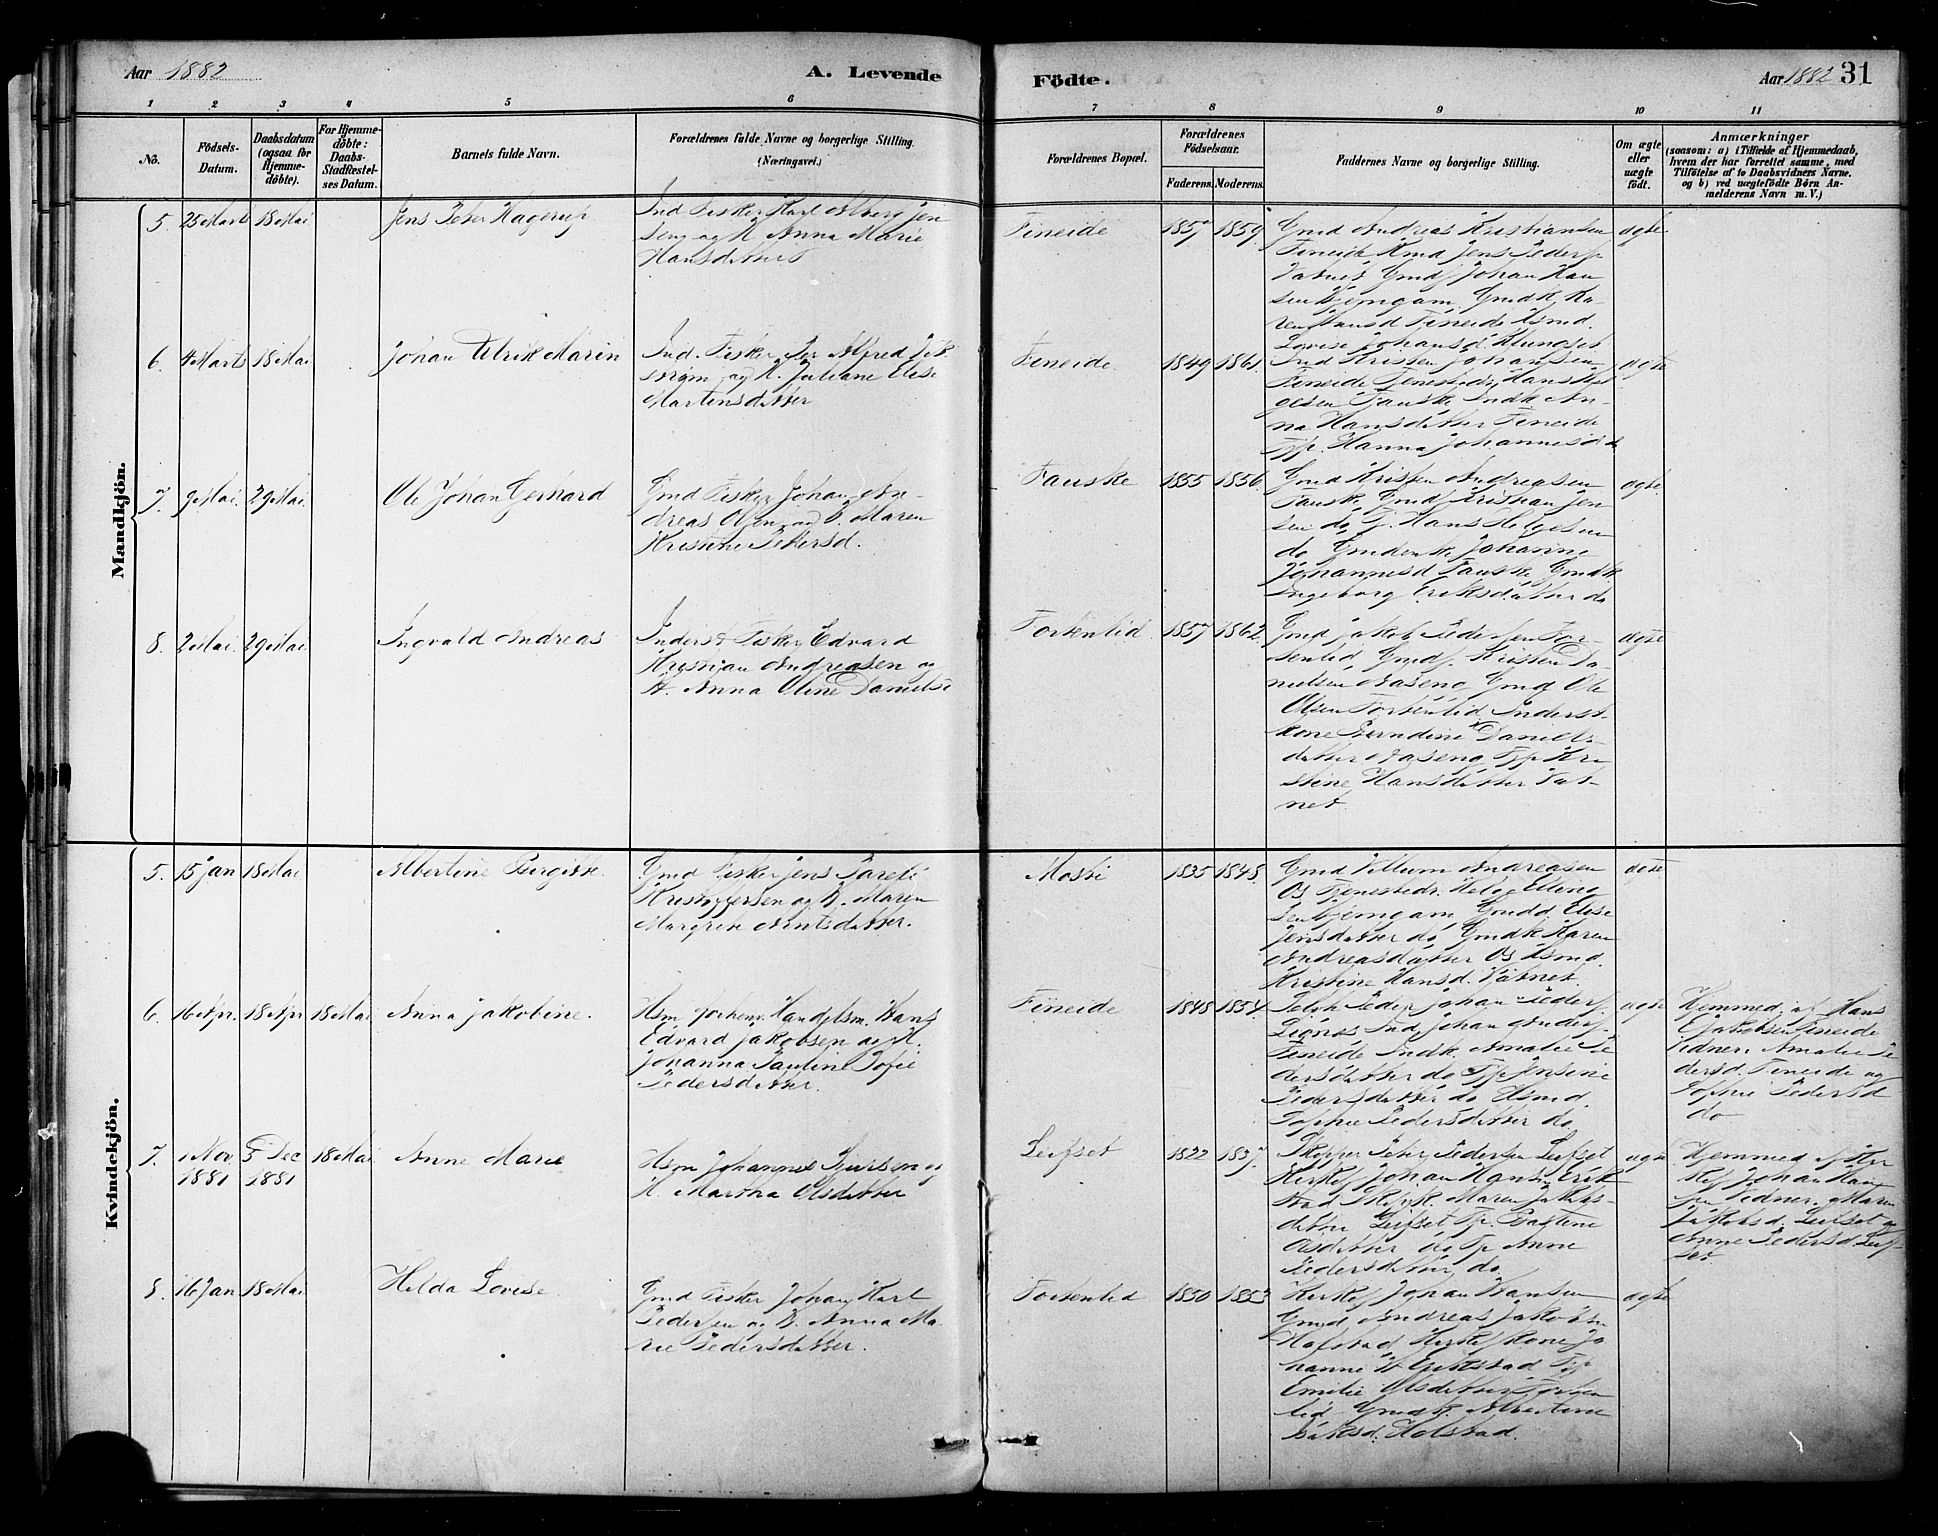 Aar 1882
A. Levende
Födte.
Aar 1882 31
1 2 3 4 5 6 7 8 9 10 11
No.
Födsels-
Datum.
Daabsdatum
(ogsaa for
Hjemme-
döbte).
For Hjemme-
döbte:
Daabs-
Stadfæstel-
ses Datum.
Barnets fulde Navn.
Forældrenes fulde Navne og borgerlige Stilling.
(Næringsvei.)
Forældrenes Bopæl.
Forældrenes
Födselsaar.
Faderens. Moderens.
Faddernes Navne og borgerlige Stilling.
Om ægte
eller
uægte
födt.
Anmærkninger
(saasom: a) i Tilfælde af Hjemmedaab,
hvem der har forrettet samme, med
Tilföielse af to Daabsvidners Navne,
og b) ved uægtefödte Börn An-
melderens Navn m. V.)
Mandkjön.
5. 25 Marts 18 Mai
Jens Peter Hagerup
Ind Fisker Karl Alberg Jen
sen og K Anna Marie
Hansdatter
Fineide
1857 1859
Gmd Andreas Kristiansen
Fineide Kmd Jens Peders
Vatnet Gmd Johan Han
sen Kjemgam Gmdk Ka-
ren Hansd Fineide Hsmd
Lovise Johansd Klungset
ægte
6. 4 Marts 18 Mai
Johan Ulrik Marin
Ind. Fisker Per Alfred
og K. Juliane Elise
Martinsdatter
Fineide
1849 1861
Ind Kristen Johansen
Fineide Tjenestedr Hans Hel
gesen Fauske Indk An-
na Hansdatter Fineide
Tjp. Hanna Johannesd d
ægte
7. 9 Mai. 29 Mai
Ole Johan Gerhard
Gmd Fisker Johan An-
dreas Olsen og K Maren
Kristine Pedersd.
Fauske
1855 1856
Gmd Kristen Andreasen
Fauske Gmd Kristian Jen
sen do, Hans Helgesen
do Johanna
Johannesd Fauske Gmdk
Ingeborg Eriksdatter do
ægte
8. 2 Mai. 29 Mai
Ingvald Andreas
Inderst Fisker Edvard
Kristian Andreasen og
K. Anna Oline Danielsd
Forsenlid
1857 1862
Gmd Jakob Pedersen For-
senlid Gmd Kristen Da-
nielsen Aaseng Gmd Ole
Olsen Forsenlid Inderst
kone Berndine Daniels-
datter Aaseng Tjp Kri
stine Hansdatter Vat-
net
ægte
Kvindekjön.
5. 15 Jan 18 Mai
Albertine Bergitte.
Gmd Fisker Jens Pareli
Kristoffersen og K. Maren
Margrete Arntsdatter.
Mosti
1835 1848
Gmd Villum Andreasen
Os Tjenestedr. Helge Elling
sen Kjemgam Gmdd Elise
Jensdatter do, Gmdk Karen
Andreasdatter Os Hsmd.
Kristine Hansd. Vatnet
ægte
6. 16 Apr. 18 Apr 18 Mai
Anna Jakobine.
Hsm forhenv Handelsm. Hans
Edvard Jakobsen og K.
Johanna Pauline Sofie
Pedersdatter.
Fineide
1848 1854
Johan Peders
Ind Johan Anders
Fineide Indk. Amalie Pe
dersdatter do Tjp Jensine
Pedersdatter do Hsmd.
Sophie Pedersdatter do
ægte
Hjemmed. af Hans
E Jakobsen Fineide
Vidner: Amalie Pe
dersd. Fineide og
Sophie Pedersd
do
7. 1 Nov 1881 5 Dec 1881 18 Mai
Anne Marie
Hsm Johannes Sjursen og
K. Martha Olsdatter
Leifset
1822 1837
Skipper Peter Pedersen Leifset
Kirkes. Johan Hansen Erik
stad Skipk Maren Jakobs-
datter Leifset Tp. Bastine
Olsdatter do Tp Anne
Pedersdatter do
ægte
Hjemmed af
Johan Han
sen Vidner. Maren
Jakobsd. Leifset og
Anne Pedersd Leif
set
8. 16 Jan 18 Mai
Hilda Lovise
Gmd Fisker Johan Karl
Pedersen og K. Anna Ma-
rie Pedersdatter.
Forsenlid
1850 1853
Kirkes Johan Hansen
Gmd Andreas Jakobsen
Hofstad Kirkes kone Jo
hanne Tjp
Emilie Olsdatter Forsen
lid Gmdk. Albertine
Hofstad.
ægte